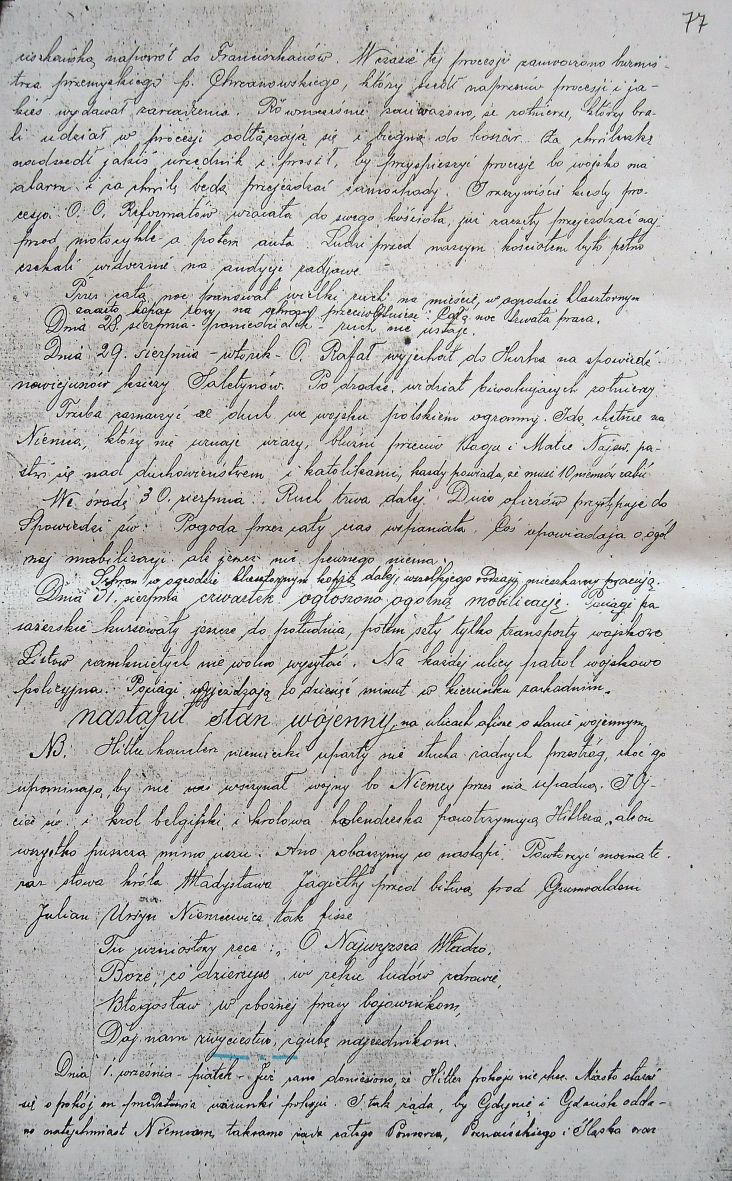 77
ciszkańską napowrót do Franciszkanów. W czasie tej procesji zauważono burmis-
trza przemyskiego p. Chrzanowskiego, który szedł naprzeciw procesji i ja-
kieś wydawał zarządzenia. Równocześnie zauważono, że żołnierze, którzy bra-
li udział w procesji odłączają się i biegną do koszar. Za chwilkę
nadszedł jakiś urzędnik i prosił, by przyspieszyć procesję bo wojsko ma
alarm i za chwilę będą przejeżdżać samochody. I rzeczywiście kiedy pro-
cesja O.O. Reformatów wracała do swego kościoła, już zaczęły przejeżdżać naj-
przód motocykle a potem auta. Ludzi przed naszym kościołem było pełno
czekali widocznie na audycje radjowe.
Przez całą noc panował wielki ruch na mieście, w ogrodzie klasztornym
zaczęto kopać rowy na schrony przeciwlotnicze i całą noc trwała praca.
Dnia 28 sierpnia - poniedziałek - ruch nie ustaje.
Dnia 29. sierpnia - wtorek - O. Rafał wyjechał do Hurka na spowiedź
nowicjuszów księży Saletynów. Po drodze widział biwakujących żołnierzy.
Trzeba zaznaczyć że duch we wojsku polskiem ogromny. Idą chętnie na
Niemca, który nie uznaje wiary, bluźni przeciw Bogu i Matce Najśw. pa-
stwi się nad duchowieństwem i katolikami, każdy powiada, że musi 10 niemców zabić
We środę 30. sierpnia. Ruch trwa dalej. Dużo oficerów przystępuje do
Spowiedzi św. Pogoda przez cały czas wspaniała. Coś opowiadają o ogól
nej mobilizacji ale jeszcze nic pewnego niema.
Schron w ogrodzie klasztornym kopią dalej, wszelkiego rodzaju mieszkańcy pracują.
Dnia 31. sierpnia czwartek ogłoszono ogólną mobilizację. Pociągi pa
sażerskie kursowały jeszcze do południa, potem szły tylko transporty wojskowe.
Listów zamkniętych nie wolno wysyłać. Na każdej ulicy patrol wojskowo
policyjna. Pociągi wyjeżdżają co dziesięć minut w kierunku zachodnim.
nastąpił stan wojenny, na ulicach afisze o stanie wojennym
NB. Hitler kanclerz niemiecki uparty nie słucha żadnych przestróg, choć go
upominają, by nie wszczynał wojny bo Niemcy przez nią upadną. I Oj-
ciec św. i król belgijski i królowa holenderska powstrzymują Hitlera, ale on
wszystko puszcza mimo uszu. Ano zobaczymy co nastąpi. Powtórzyć można te-
raz słowa króla Władysława Jagiełły przed bitwą pod Grunwaldem
Julian Ursyn Niemcewicz tak pisze
Tu wzniosłszy ręce: „O Najwyższa Władzo,
Boże, co dzierżysz w ręku ludów zdrowie,
Błogosław w zbożnej pracy bojownikom,
Daj nam zwycięstwo, zgubę najezdnikom.
Dnia 1. września - piątek - Już rano doniesiono, że Hitler pokoju nie chce. Miasto starać
się o pokój on przedstawia warunki pokoju. I tak żąda, by Gdynię i Gdańsk odda-
no natychmiast Niemcom, takramo żąda całego Pomorza, Poznańskiego i Śląska oraz